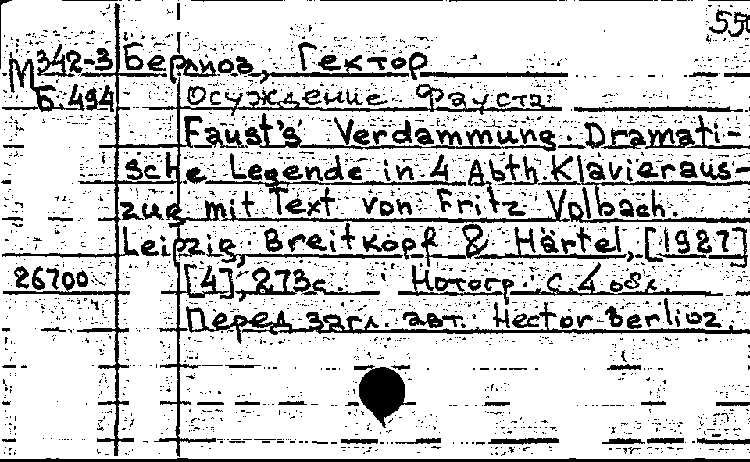 550
М 342-3 Берлиоз, Гектор
Б. 494 Осуждение Фауста
Faust's Verdammung. Dramati-
sche Legende in 4 Abth. Klavieraus-
zug mit Text von Fritz Volbach.
Leipzig, Breitkopf & Härtel, [1927]
26700 [4], 273с. Нотогр. с. 4 обл.
Перед загл. авт. Hector Berlioz.